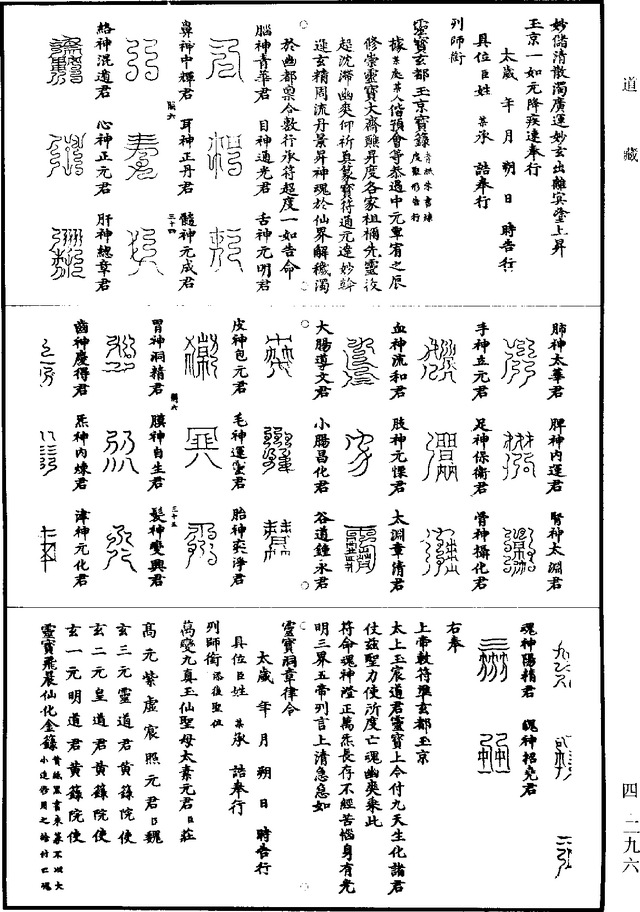 道藏
妙儲清散濁廣運妙玄出離冥堂上昇
玉京一如元降疾速奉行
太歲　年　月　朔　日　時告行
具位臣姓　某承　誥奉行
列師銜
靈寶玄都玉京寶籙
據某處某人偕預會等恭遇中元覃宥之辰
修崇靈寶大齋醮昇度各家祖禰先靈汝
超沈滯幽爽仰祈真篆寶符通元達妙斡
運玄精周流丹景昇神魂於仙界解穢濁
於幽都稟合敷行承符超度一如告命
腦神青華君　目神通光君　舌神元明君
鼻神中輝君　耳神正丹君　髓神元成君
絡神混道君　心神正元君　肝神總章君
肺神太華君　脾神內運君　腎神太淵君
手神立元君　足神保衛君　骨神攝化君
血神流和君　肢神元慄君　太淵章清君
大腸導文君　小腸昌化君　谷道鍾永君
皮神包元君　毛神運靈君　胎神奕淨君
胃神洞精君　膜神自生君　髮神變興君
齒神慶得君　炁神內煉君　津神元化君
魂神陽精君　魄神招堯君
右奉
上帝敕符準玄都玉京
太上玉宸道君靈寶上令付九天生化諸君
仗茲聖力使所度亡魂幽爽乘此
符命魂神澄正萬炁長存不經苦惱身有光
明三界五帝列言上清急急如
靈寶洞章律令
太歲　年　月　朔　日　時告行
具位臣姓　某承　誥奉行
列師銜
萬變九真玉仙聖母太素元君臣莊
高元紫虛宸照元君臣魏
玄三元靈道君黃籙院使
玄二元皇道君黃籙院使
玄一元明道君黃籙院使
靈寶飛晨仙化金籙
四－二九六